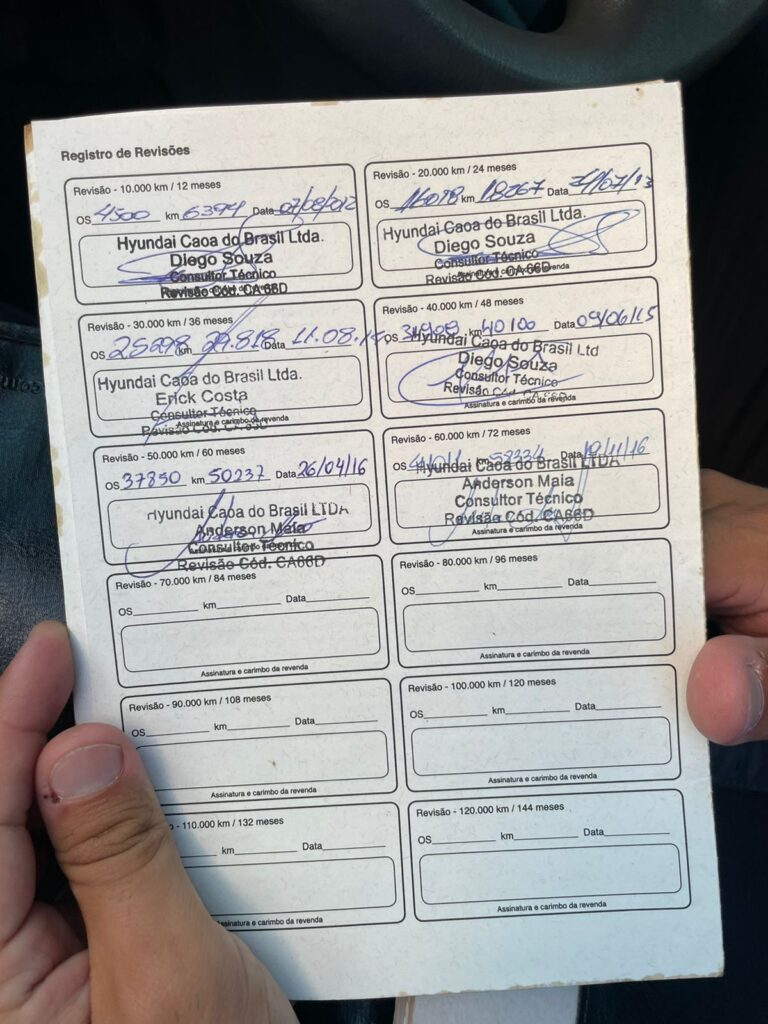 Registro de Revisões
Revisão - 10.000 km / 12 meses
OS 4500 km 6394 Data 07/08/012
Hyundai Caoa do Brasil Ltda.
Diego Souza
Consultor Técnico
Revisão Cód. CA66D
Revisão - 20.000 km / 24 meses
OS 16078 km 18267 Data
Hyundai Caoa do Brasil Ltda.
Diego Souza
Consultor Técnico
Assinatura e carimbo da revenda
Revisão Cód. CA66D
Revisão - 30.000 km / 36 meses
OS 25298 km 29.818 Data 11.08.
Hyundai Caoa do Brasil Ltda.
Erick Costa
Consultor Técnico
Assinatura e carimbo da revenda
Revisão Cód.
Revisão - 40.000 km / 48 meses
OS km 40100 Data 09/06/15
Hyundai Caoa do Brasil Ltd
Diego Souza
Consultor Técnico
Revisão
Assinatura e carimbo da revenda
Revisão - 50.000 km / 60 meses
OS 37850 km 50237 Data 26/04/16
Hyundai Caoa do Brasil LTDA
Anderson Maia
Consultor Técnico
Revisão Cód. CA66D
Revisão - 60.000 km / 72 meses
OS km 58334 Data /11/16
Hyundai Caoa do Brasil LTDA
Anderson Maia
Consultor Técnico
Revisão Cód. CA66D
Assinatura e carimbo da revenda
Revisão - 70.000 km / 84 meses
OS km Data
Assinatura e carimbo da revenda
Revisão - 80.000 km / 96 meses
OS km Data
Assinatura e carimbo da revenda
Revisão - 90.000 km / 108 meses
OS km Data
Assinatura e carimbo da revenda
Revisão - 100.000 km / 120 meses
OS km Data
Assinatura e carimbo da revenda
- 110.000 km / 132 meses
km Data
Assinatura e carimbo da revenda
Revisão - 120.000 km / 144 meses
OS km Data
Assinatura e carimbo da revenda